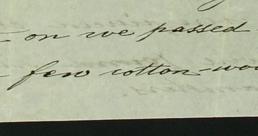 on we passed
few cotton